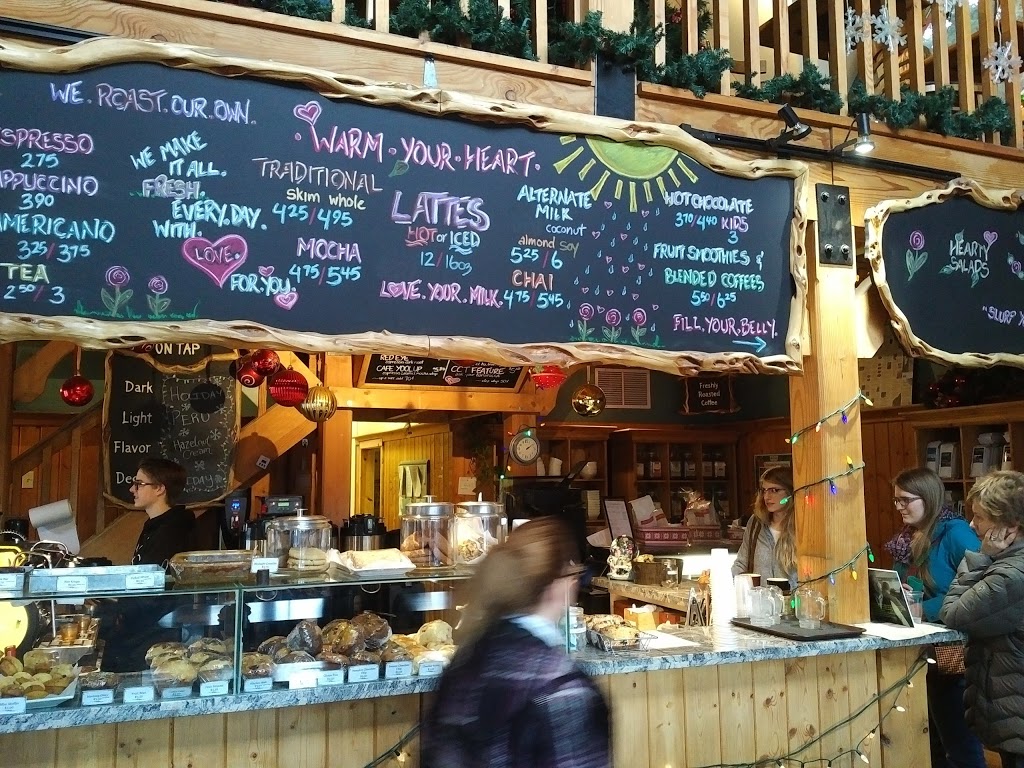 WE.ROAST.OUR.OWN.
SPRESSO
275
APPUCCINO
390
AMERICANO
325/375
TEA
250/3
WE MAKE
IT ALL.
FRESH.
EVERY.DAY.
WITH.
LOVE.
FOR.YOU.
WARM.YOUR.HEART.
TRADITIONAL
skim whole
425/495
MOCHA
475/545
LATTES
HOT or ICED
12/16oz
LOVE.YOUR.MILK.
ALTERNATE
MILK
coconut
almond soy
525/6
CHAI
475 545
HOT CHOCOLATE
370/440 KIDS
3
FRUIT SMOOTHIES &
BLENDED COFFEES
550/625
FILL.YOUR.BELLY.
HEARTY
SALADS
"SLURP
ON TAP
Dark
Light
Flavor
HOLIDAY
PERU
Hazelnut
Cream
RED EYE
CAFE YOOL UP
CCT FEATURE
Freshly
Roasted
Coffee